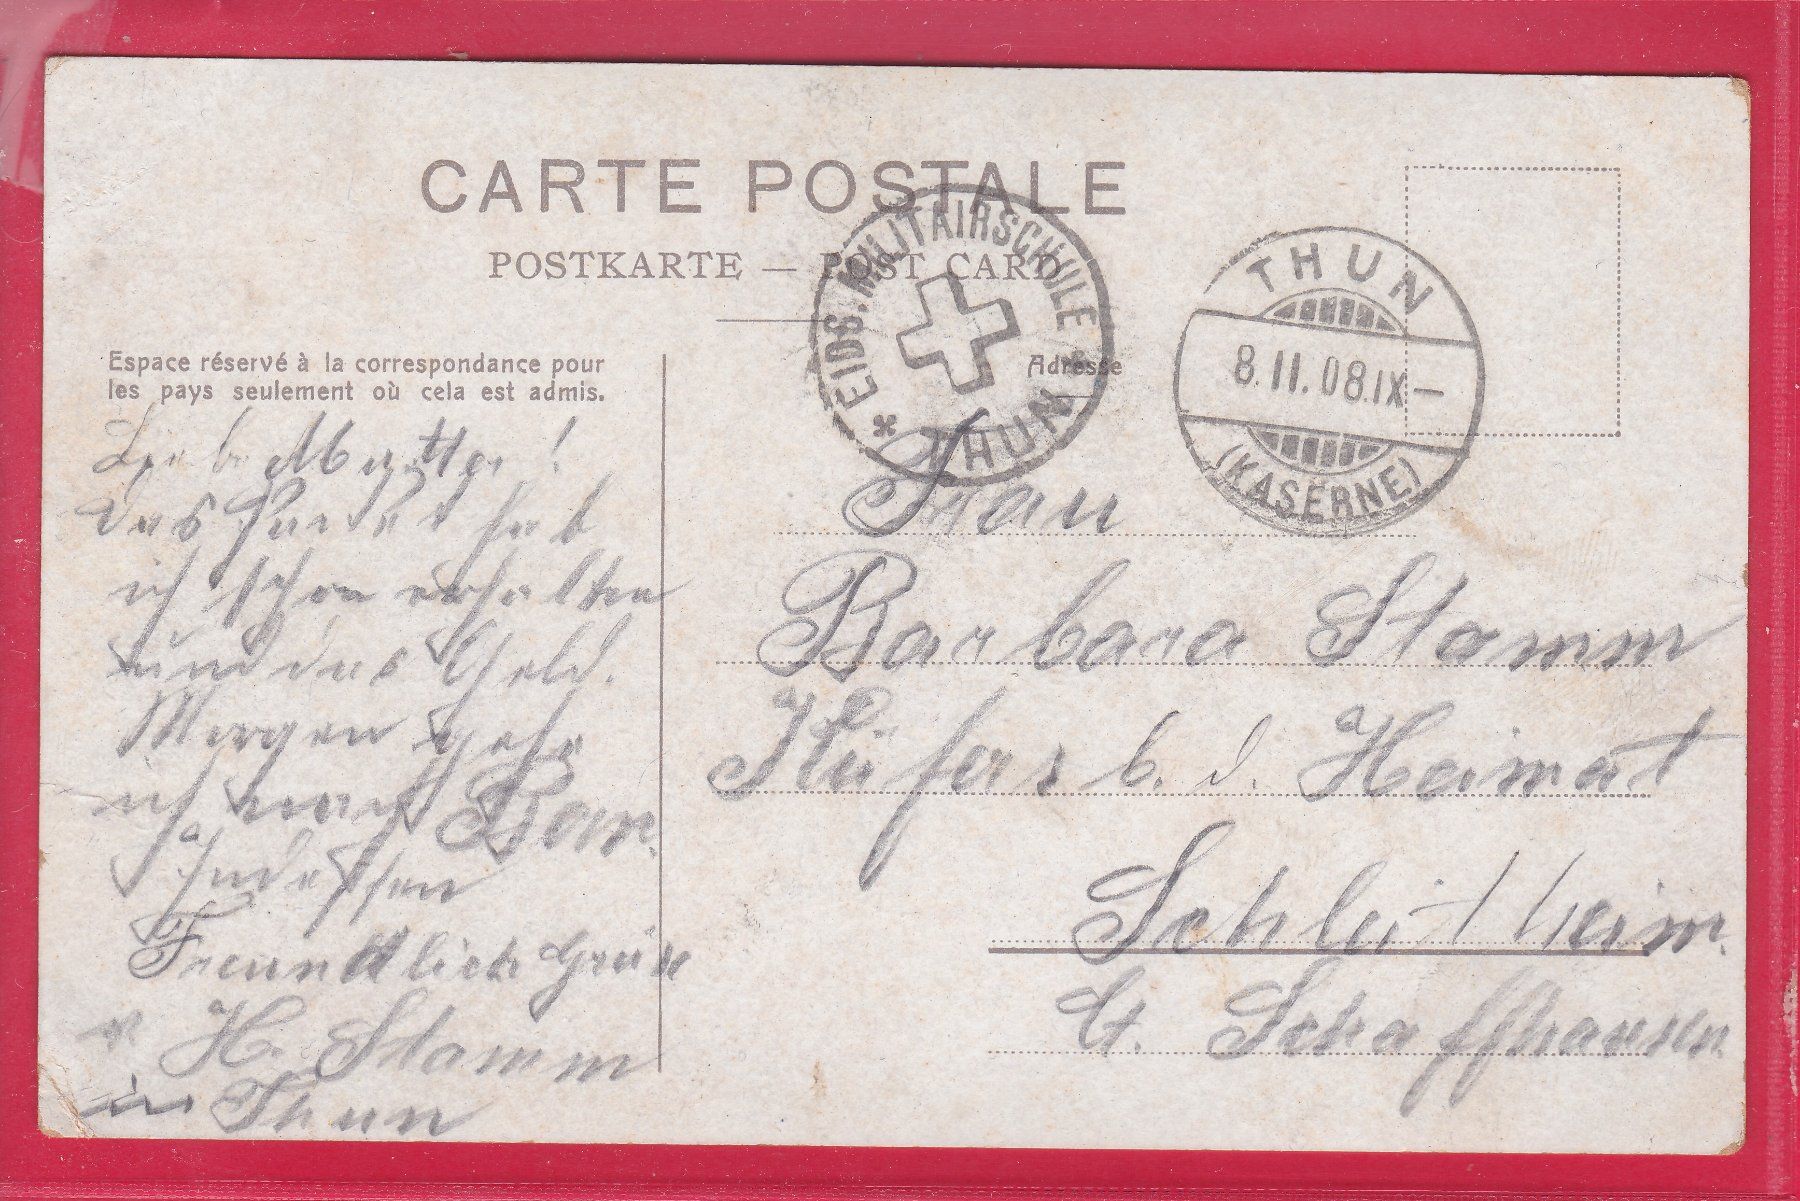 CARTE POSTALE
POSTKARTE — POST CARD
Espace réservé à la correspondance pour
les pays seulement où cela est admis.
Adresse
* EIDS. MILITAIRSCHULE THUN
THUN
8.II.08.IX–
(KASERNE)
Liebe Mutter!
Das Packet hab
ich schon erhalten
und das Geld.
Morgen gehe
ich nach Bern.
Indessen
Freundlich Grüse
v. H. Stamm
in Thun
Frau
Barbara Stamm
Küfers b. d. Heimat
Schleitheim.
Ct. Schaffhausen.